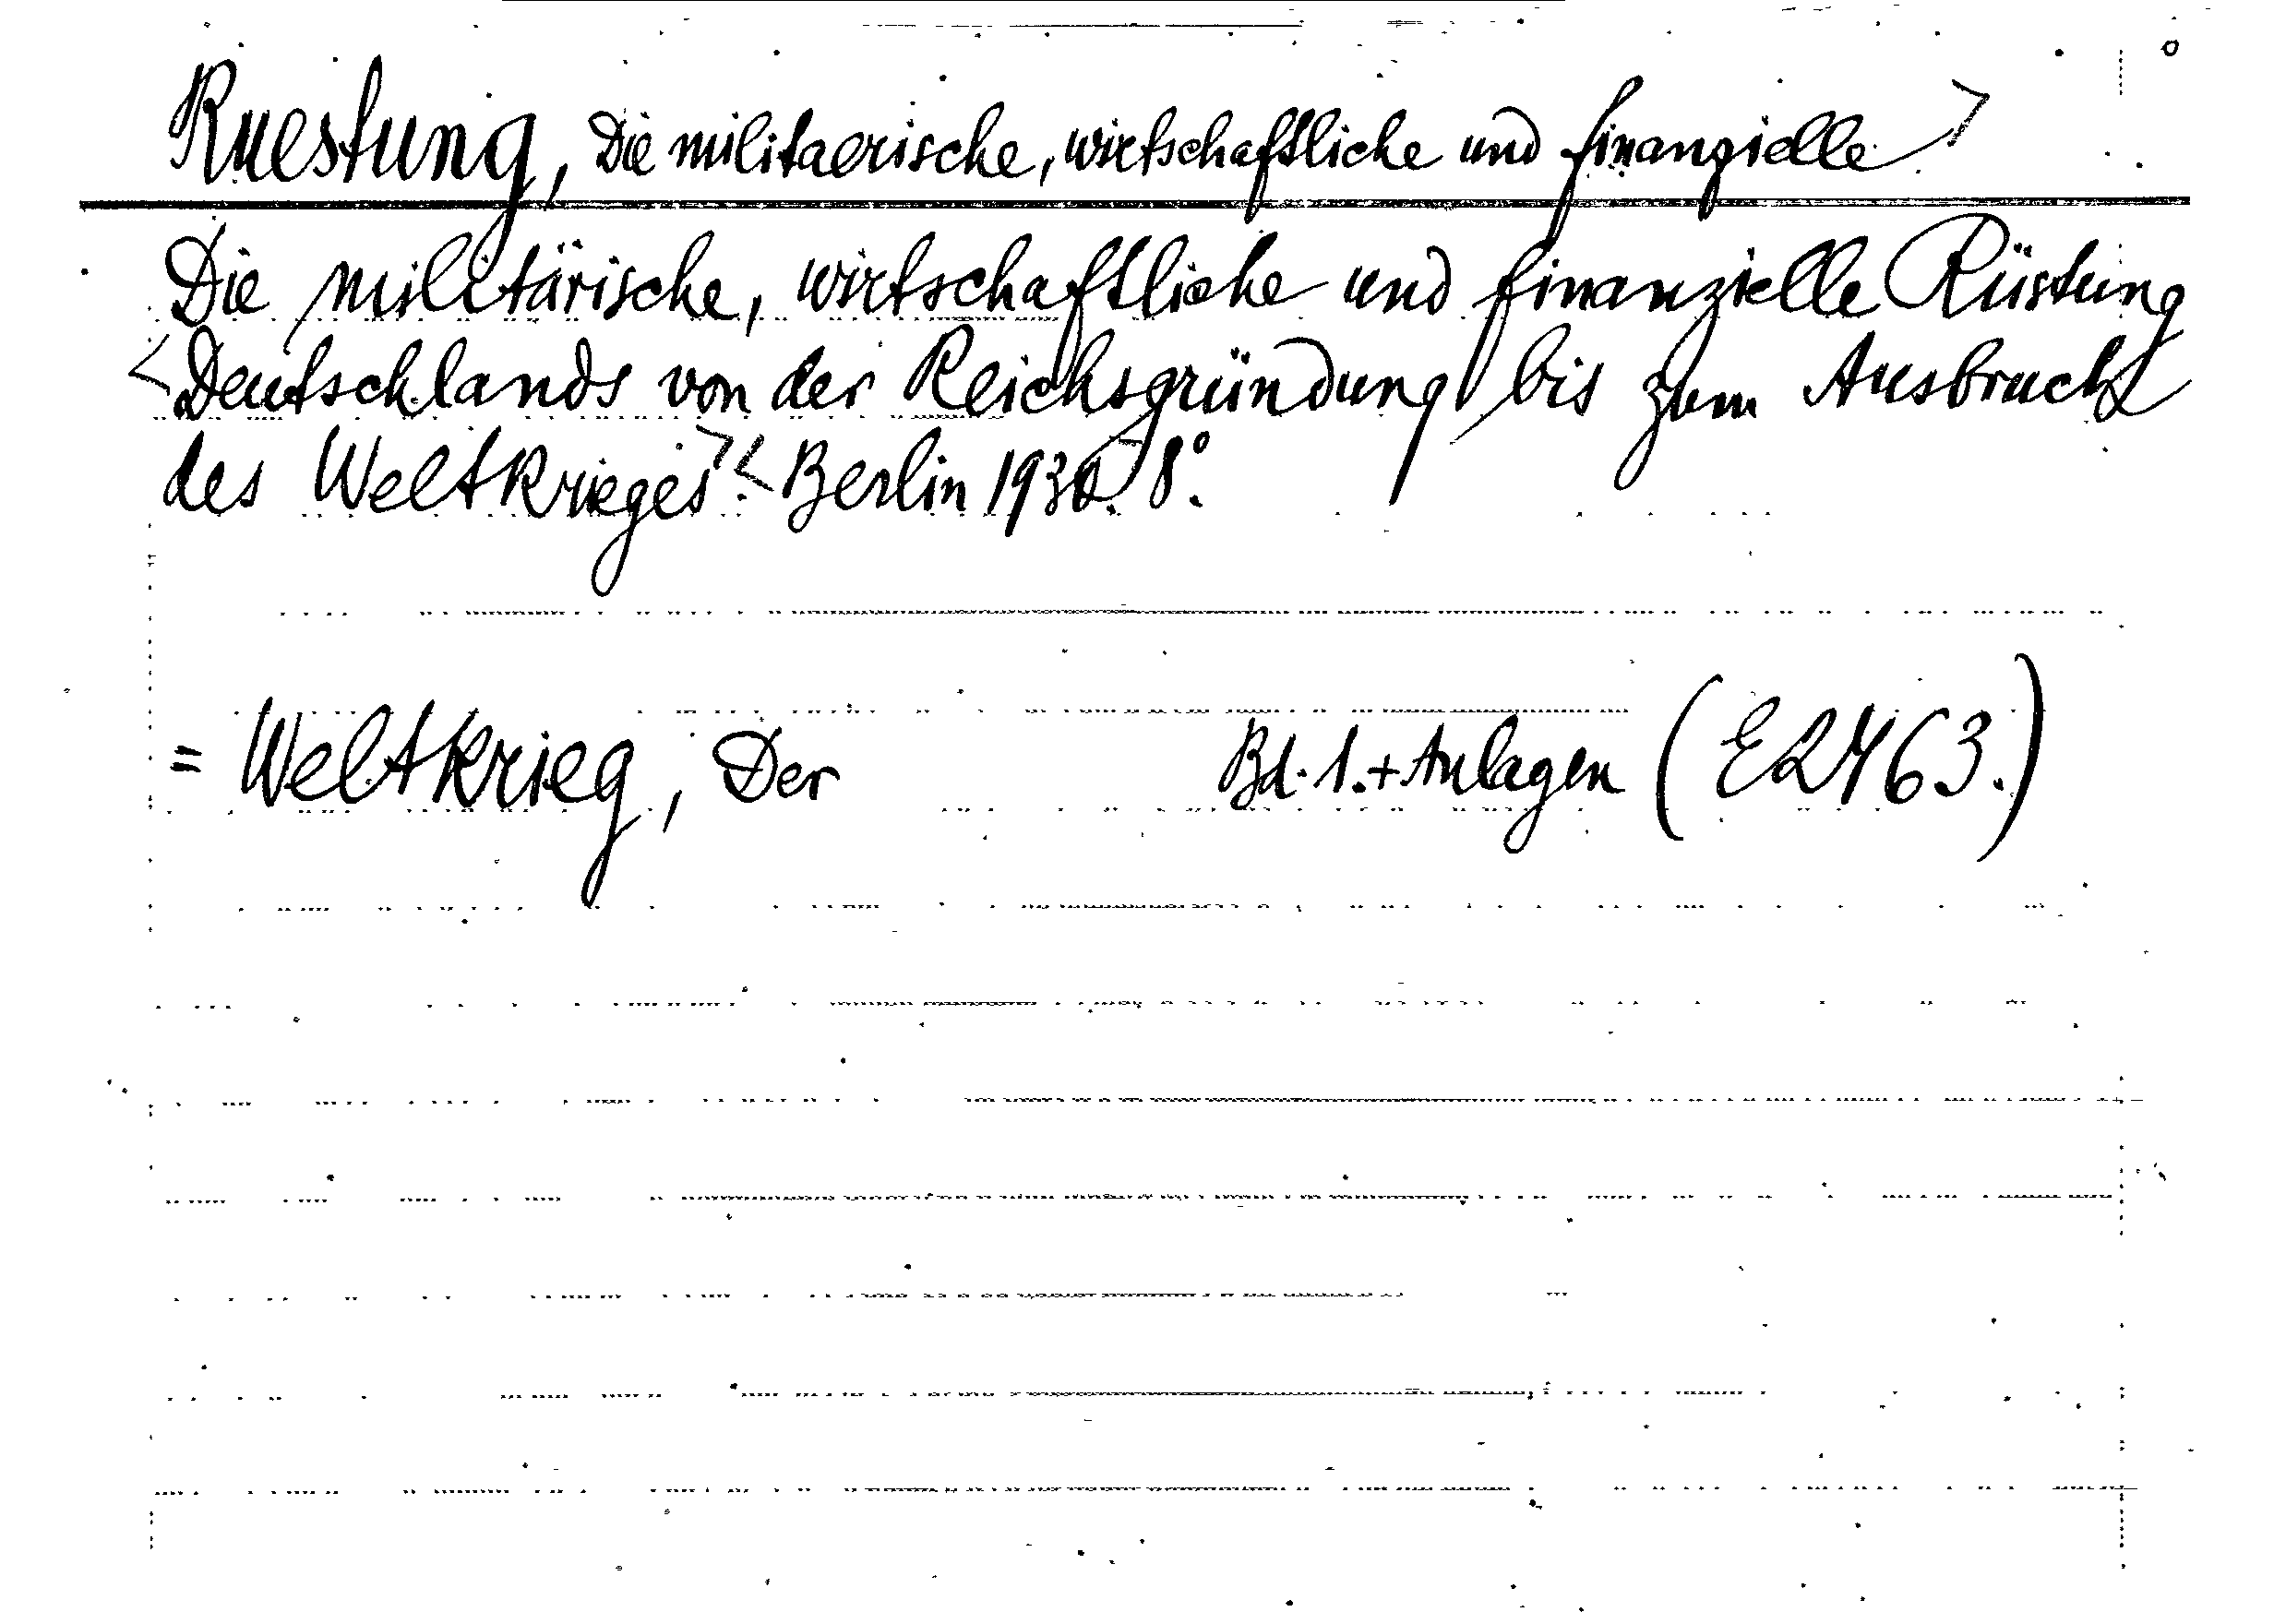 Ruestung, Die militaerische, wirtschaftliche und finanzielle >
Die militärische, wirtschaftliche und finanzielle Rüstung
< Deutschlands von der Reichsgründung bis zum Ausbruch
des Weltkrieges. >< Berlin 1930. 8°.
= Weltkrieg, Der Bd. 1. + Anlagen (E2463.)